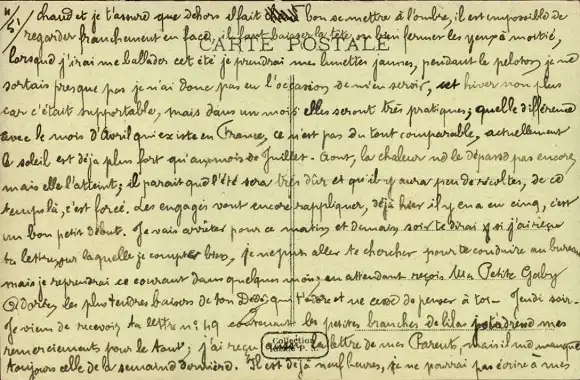 4/5/ chaud et je t'assure que dehors il fait bon se mettre à l'ombre, il est impossible de
regarder franchement en face, il faut baisser la tête ou bien fermer les yeux à moitié,
CARTE POSTALE
lorsque j'irai me ballader cet été je prendrai mes lunettes jaunes, pendant le peloton je ne
sortais presque pas je n'ai donc pas eu l'occasion de m'en servir, cet hiver non plus
car c'était supportable, mais dans un mois elles seront très pratiques; quelle différence
avec le mois d'Avril qui existe en France, ce n'est pas du tout comparable, actuellement
le soleil est déjà plus fort qu'au mois de Juillet-Aout, la chaleur ne le dépasse pas encore
mais elle l'atteint; il parait que l'été sera très dur et qu'il y aura peu de récoltes, de ce
temps là, c'est forcé. Les engagés vont encore rappliquer, déjà hier il y en a eu cinq, c'est
un bon petit début. Je vais arrêter pour ce matin et demain soir te dirai si j'ai reçu
ta lettre sur laquelle je compte bien, je ne puis aller te chercher pour te conduire au bureau
mais je reprendrai ce courant dans quelques mois, en attendant reçois Ma Petite Gaby
Adorée, les plus tendres baisers de ton Dédé qui t'adore et ne cesse de penser à toi - Jeudi soir-
Je viens de recevoir ta lettre n° 49 contenant les petites branches de lilas mes
remerciements pour le tout; j'ai reçu aussi la lettre de mes Parents, mais il me manque
toujours celle de la semaine dernière. Il est déjà neuf heures, je ne pourrai pas écrire à mes
Collection